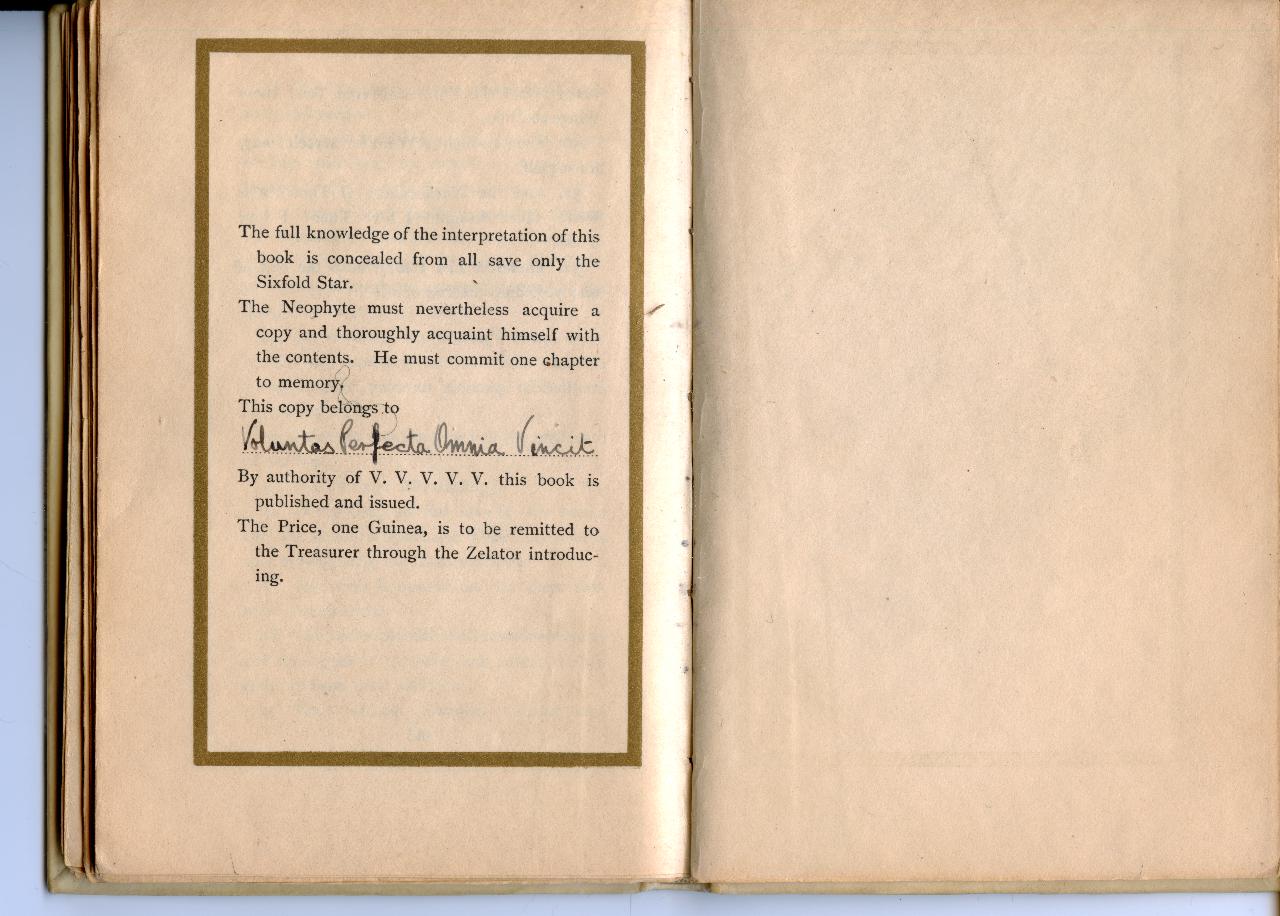 The full knowledge of the interpretation of this
book is concealed from all save only the
Sixfold Star.
The Neophyte must nevertheless acquire a
copy and thoroughly acquaint himself with
the contents. He must commit one chapter
to memory.
This copy belongs to
Voluntas Perfecta Omnia Vincit
By authority of V. V. V. V. V. this book is
published and issued.
The Price, one Guinea, is to be remitted to
the Treasurer through the Zelator introduc-
ing.